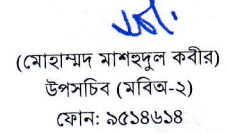 (মোহাম্মদ মাশহুদুল কবীর)
উপসচিব (মবিঅ-২)
ফোন: ৯৫১৪৬১৪